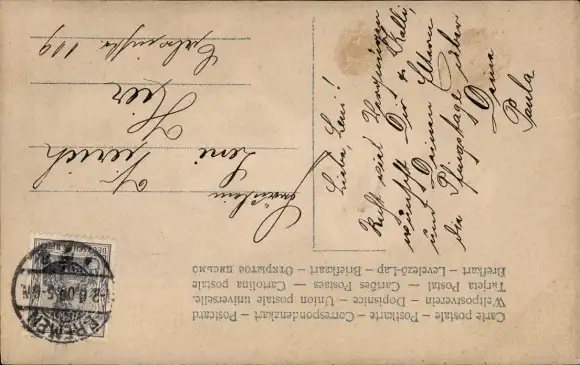 Carte postale – Postkarte – Correspondenzkart – Postcard
Weltpostverein – Dopisnice – Union postale universelle.
Tarjeta Postal – Cartões Postaes – Cartolina postale
Brefkart – Levelező-Lap – Briefkaart – Открытое письмо
BREMEN
2.6.09
DEUTSCHES REICH
Fräulein
Leni
Hier
119
Liebe Leni!
Recht viel Vergnügen
wünscht Dir
und Deinen Eltern
die Pfingstage über
Deine
Paula